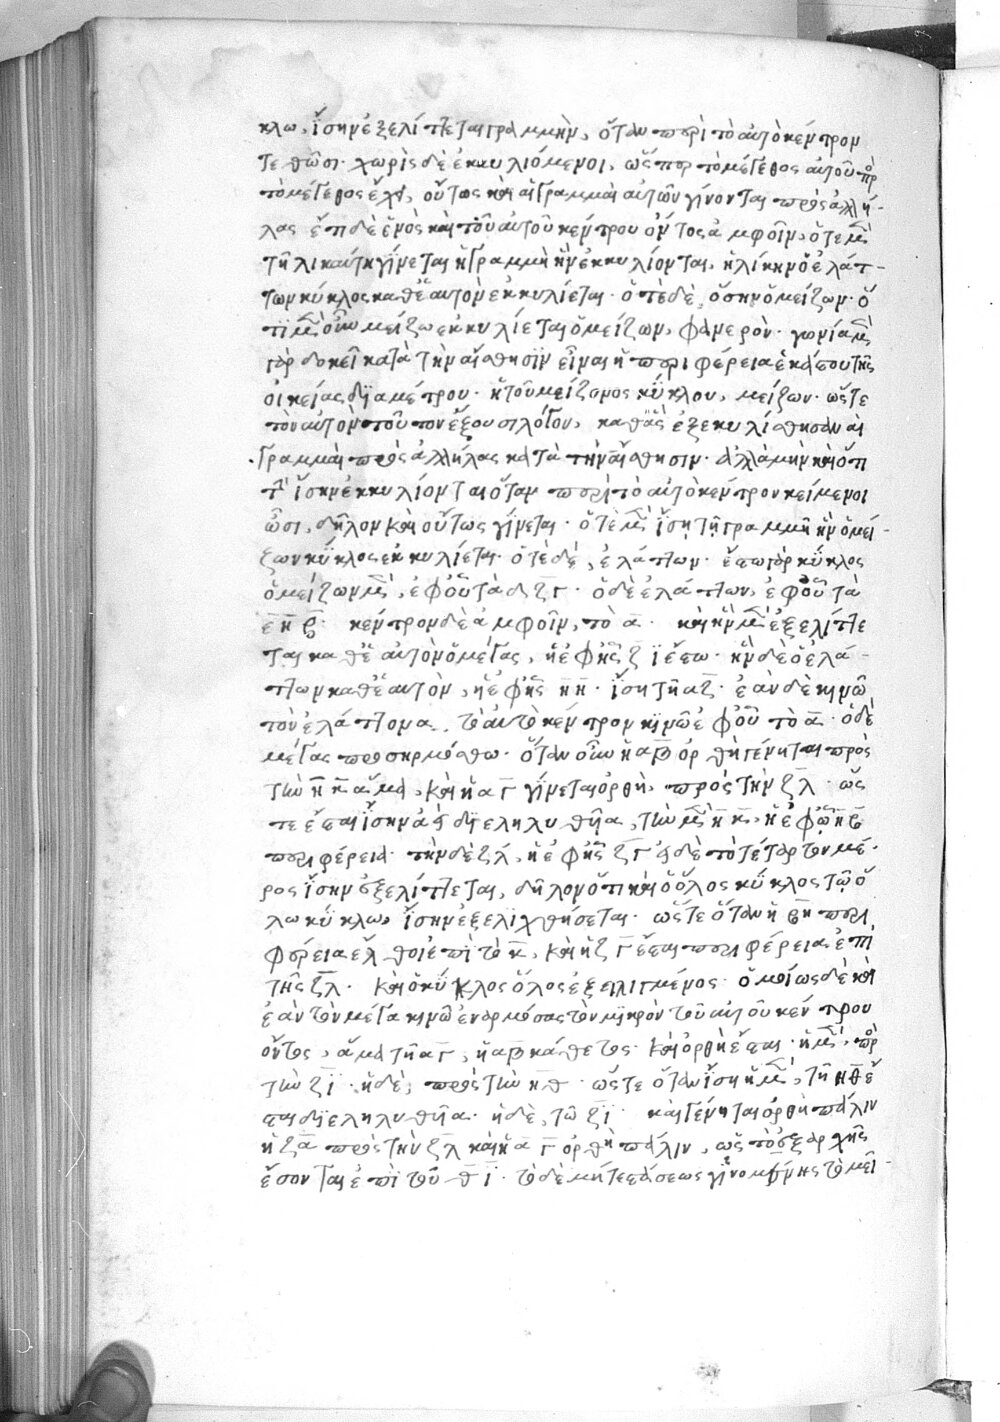 κλω, ἴσην ἐξελίττεται γραμμὴν, ὅταν περὶ τὸ αὐτὸ κέντρον
τεθῶσι· χωρὶς δὲ ἐκκυλιόμενοι, ὥσπερ τὸ μέγεθος αὐτοῦ πρὸς
τὸ μέγεθος ἔχει, οὕτως καὶ αἱ γραμμαὶ αὐτῶν γίνονται πρὸς ἀλλή-
λας ἔτι δὲ ἑνὸς καὶ τοῦ αὐτοῦ κέντρου ὄντος ἀμφοῖν, ὁτὲ μὲν
τηλικαύτη γίνεται ἡ γραμμὴ ἣν ἐκκυλίονται, ἡλίκην ὁ ἐλάτ-
των κύκλος καθ' ἑαυτὸν ἐκκυλίεται· ὁτὲ δὲ, ὅσην ὁ μείζων· ὅ
τι μὲν οὖν μείζω ἐκκυλίεται ὁ μείζων, φανερὸν· γωνία μὲν
γὰρ δοκεῖ κατὰ τὴν αἴσθησϊν εἶναι ἡ περιφέρεια ἑκάστου τῆς
οἰκείας διαμέτρου· ἡ τοῦ μείζονος κύκλου, μείζων· ὥστε
τὸν αὐτὸν τοῦτον ἕξουσι λόγον, καθ' ἃς ἐξεκυλίσθησαν αἱ
γραμμαὶ πρὸς ἀλλήλας κατὰ τὴν αἴσθησιν· ἀλλὰ μὴν καὶ ὅτι
τὴν ἴσην ἐκκυλίονται ὅταν περὶ τὸ αὐτὸ κέντρον κείμενοι
ὦσι, δῆλον καὶ οὕτως γίνεται· ὁτὲ μὲν ἴση τῇ γραμμῇ ἣν ὁ μεί-
ζων κύκλος ἐκκυλίεται· ὁτὲ δὲ, ἐλάττων· ἔστω γὰρ κύκλος
ὁ μείζων μὲν, ἐφ' οὗ τὰ δζγ· ὁ δὲ ἐλάττων, ἐφ' οὗ τὰ
ε̄ η̄ β̄· κέντρον δὲ ἀμφοῖν, τὸ ᾱ· καὶ ἣν μὲν ἐξελίττε
ται καθ' ἑαυτὸν ὁ μέγας, ἡ ἐφ' ἧς ζ ϊ ἔστω· ἣν δὲ ὁ ἐλά-
ττων καθ' ἑαυτὸν, ἡ ἐφ' ἧς η̄ κ̄· ἴση τῇ αζ̄· ἐὰν δὲ κινῶ
τὸν ἐλάττονα, τὸ αὐτὸ κέντρον κινῶ ἐφ' οὗ τὸ ᾱ· ὁ δὲ
μέγας προσηρμόσθω· ὅταν οὖν ἡ αβ̄ ὀρθὴ γένηται πρὸς
τὴν η̄ κ̄ ἅμα, καὶ ἡ αγ̄ γίνεται ὀρθὴ, πρὸς τὴν ζλ̄· ὥσ
τε ἔσται ἴσην ἀεὶ διεληλυθῖα, τὴν μὲν η̄ κ̄, ἡ ἐφ' ᾧ η̄β̄
περιφέρεια· τὴν δὲ ζλ, ἡ ἐφ' ἧς ζγ̄ εἰ δὲ τὸ τέταρτον μέ-
ρος ἴσην ἐξελίττεται, δῆλον ὅτι καὶ ὁ ὅλος κύκλος τῷ ὅ
λω κύκλω, ἴσην ἐξελιχθήσεται· ὥστε ὅταν ἡ β̄η περι
φέρεια ἔλθοι ἐπὶ τὸ κ̄, καὶ ἡ ζγ̄ ἔσται περιφέρεια ἐπὶ
τῆς ζλ̄· καὶ ὁ κύκλος ὅλος ἐξειλιγμένος· ὁμοίως δὲ καὶ
ἐὰν τὸν μέγα κινῶ ἐναρμόσας τὸν μικρὸν τοῦ αὐτοῦ κέντρου
ὄντος, ἅμα τῇ αγ̄, ἡ αβ̄ κάθετος καὶ ὀρθὴ ἔσται· ἡ μὲν, πρὸς
τὴν ζῑ· ἡ δὲ, πρὸς τὴν η̄θ̄· ὥστε ὅταν ἴση ἡ μὲν, τῇ η̄θ̄ ἔ
σται διεληλυθῖα· ἡ δὲ, τῶ ζῑ· καὶ γένηται ὀρθὴ πάλιν
ἡ ζᾱ πρὸς τὴν ζλ καὶ ἡ αγ̄ ὀρθὴ πάλιν, ὡς τὸ ἐξ ἀρχῆς
ἔσονται ἐπὶ τοῦ θ̄ ῑ· τὸ δὲ μήτε στάσεως γινομένης τὸ μεῖ-